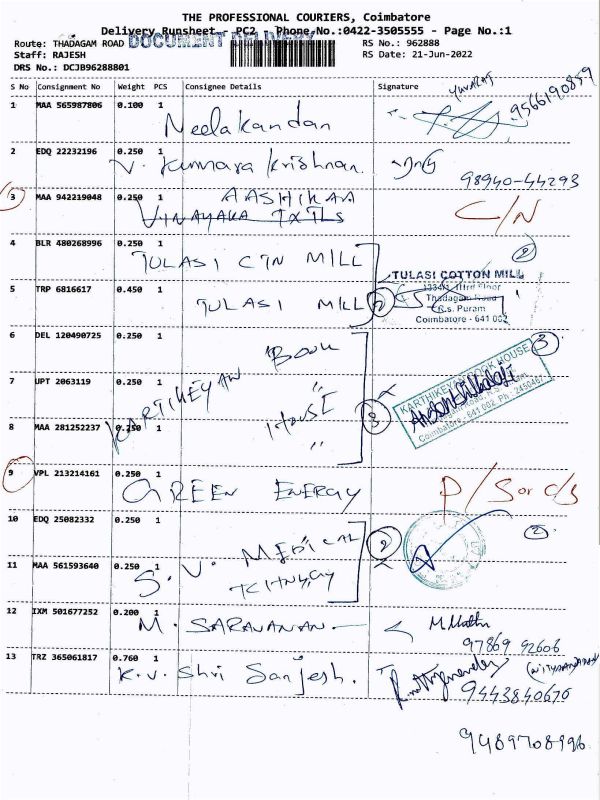 THE PROFESSIONAL COURIERS, Coimbatore
Delivery Runsheet - PC2 - Phone No.:0422-3505555 - Page No.:1
DOCUMENT DELIVERY
Route: THADAGAM ROAD RS No.: 962888
Staff: RAJESH RS Date: 21-Jun-2022
DRS No.: DCJB96288801
S No Consignment No Weight PCS Consignee Details Signature
1 MAA 565987806 0.100 1 Neelakandan YUVARAJ 9566190859
2 EDQ 22232196 0.250 1 V. Kumara Krishnan 98940-44293
3 MAA 942219048 0.250 1 AASHIKAA C/N
VINAYAKA TXTLS
4 BLR 480268996 0.250 1 TULASI CTN MILL 2
5 TRP 6816617 0.450 1 TULASI MILL 2
TULASI COTTON MILL
IIIrd Floor
Thadagam Road
R.s. Puram
Coimbatore - 641 002
6 DEL 120490725 0.250 1 BOOK
7 UPT 2063119 0.250 1 KARTIKEYAN "
8 MAA 281252237 0.250 1 HOUSE 3
"
KARTHIKEYAN BOOK HOUSE 3
Coimbatore - 641 002. Ph : 2450467
9 VPL 213214161 0.250 1 GREEN ENERGY P/Sor c/s
10 EDQ 25082332 0.250 1 2 2
11 MAA 561593640 0.250 1 S.V. MEDICAL
12 IXM 501677252 0.200 1 M. SARAVANAN M.Muthu
97869 92606
13 TRZ 365061817 0.760 1 K.V. Shri Sanjesh.
9443840676
9489708996